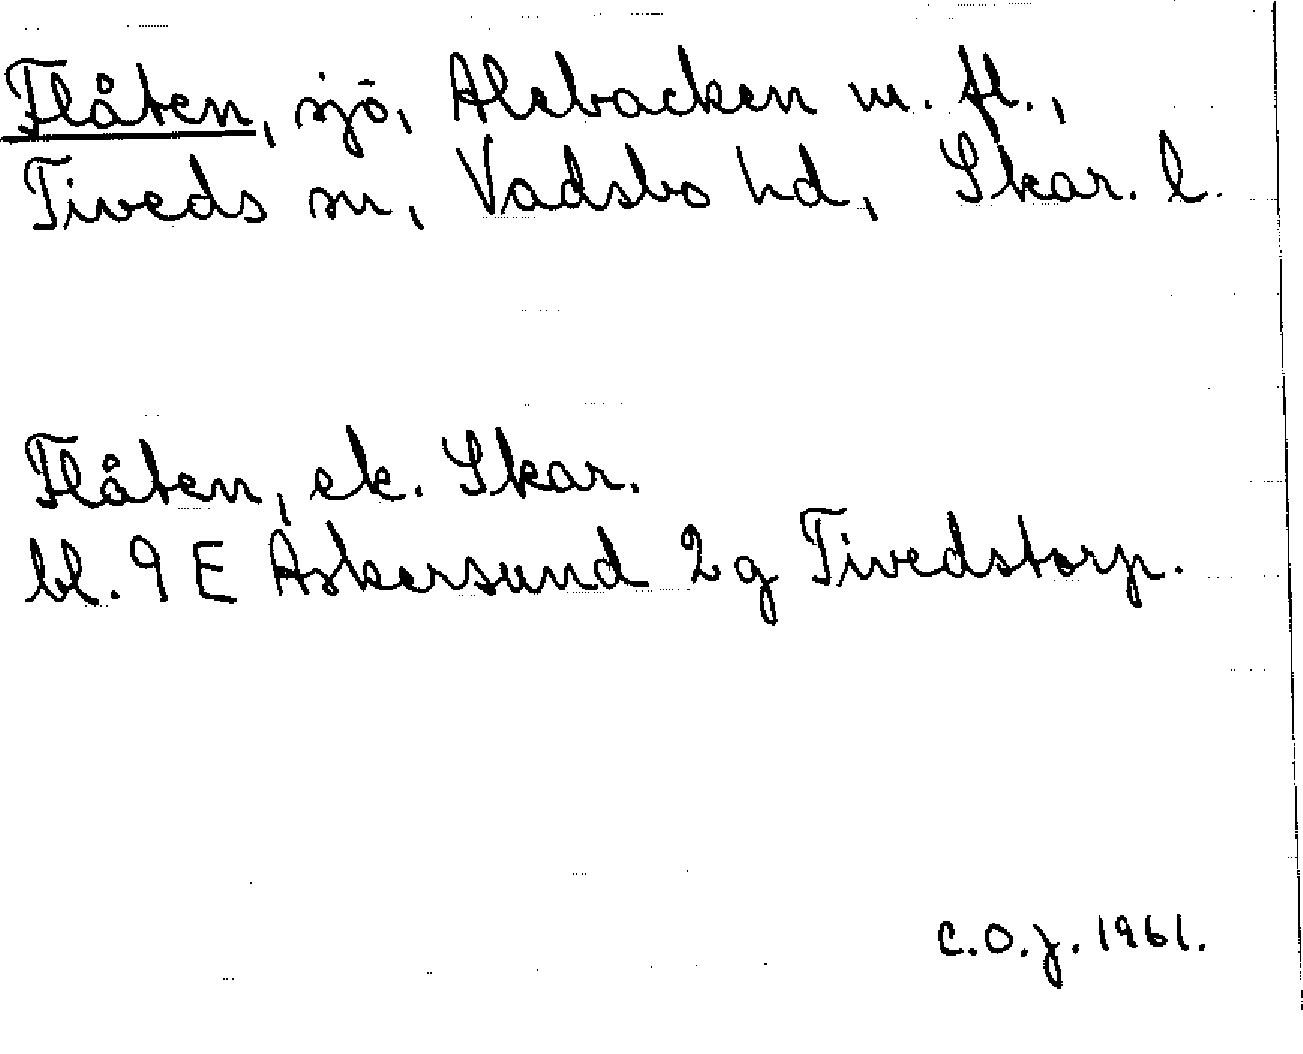 Flåten, sjö, Alebacken m. fl.,
Tiveds sn, Vadsbo hd, Skar. l.
Flåten, ek. Skar.
bl. 9 E Askersund 2g Tivedstorp.
C.O.J. 1961.